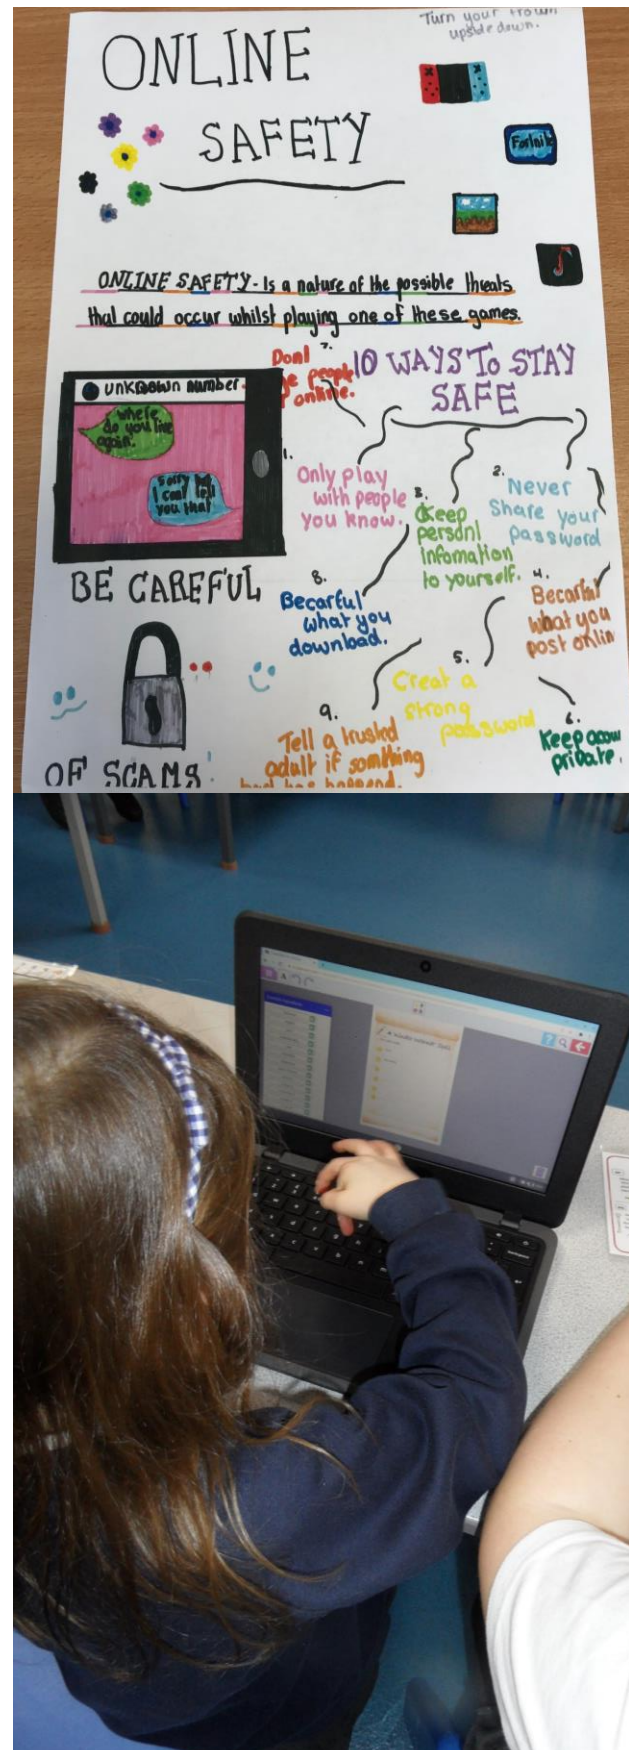 Turn your frown
upside down.
ONLINE
SAFETY
Fortnite
ONLINE SAFETY- Is a nature of the possible threats
that could occur whilst playing one of these games.
unknown number.
where
do you live
again.
Sorry but
I cant tell
you that
BE CAREFUL
OF SCAMS!
10 WAYS TO STAY
SAFE
1.
Only play
with people
you know.
2.
Never
Share your
password
3.
Keep
personl
infomation
to yourself.
4.
Becarful
what you
post onlin
5.
Creat a
strong
password
6.
Keep
private.
7.
Dont
people
online.
8.
Becarful
what you
download.
9.
Tell a trusted
adult if somthing
bad has happend.